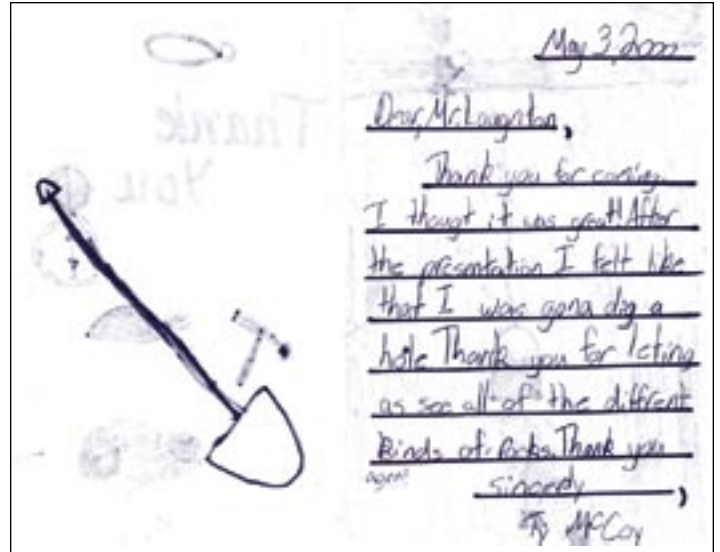 Thank
You
May 3, 2000
Dear, Mr Laughton,
Thank you for coming.
I thougt it was great! After
the presentation I felt like
that I was gona dig a
hole Thank you for leting
as see all of the different
Kinds of Rocks. Thank you
agen!
sincerly,
Ty McCoy